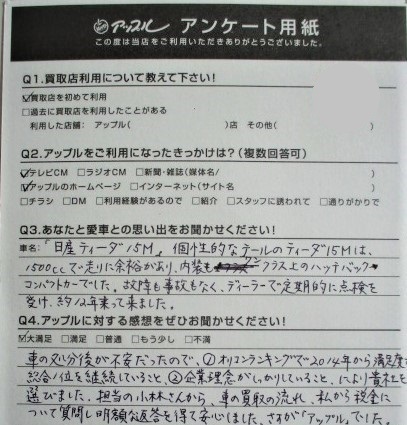 アップル アンケート用紙
この度は当店をご利用いただきありがとうございました。
Q1.買取店利用について教えて下さい!
☑買取店を初めて利用
□過去に買取店を利用したことがある
利用した店舗: アップル( )店 その他( )
Q2.アップルをご利用になったきっかけは?(複数回答可)
☑テレビCM □ラジオCM □新聞・雑誌(媒体名/ )
☑アップルのホームページ □インターネット(サイト名 )
□チラシ □DM □利用経験があるので □紹介 □スタッフに誘われて □通りがかりで
Q3.あなたと愛車との思い出をお聞かせください!
車名:「日産ティーダ15M」, 個性的なテールのティーダ15Mは、
1500ccで走りに余裕があり、内装もワンクラス上のハッチバック
コンパクトカーでした。故障も事故もなく、ディーラーで定期的に点検を
受け、約12年乗って来ました。
Q4.アップルに対する感想をぜひお聞かせください!
☑大満足 □満足 □普通 □もう少し □不満
車の処分後が不安だったので、①オリコンランキングで2014年から満足度
総合1位を継続していること、②企業理念がしっかりしていること、により貴社を
選びました。担当の小林さんから、車の買取の流れ、私から税金に
ついて質問し明朗な返答を得て安心しました、さすが「アップル」でした。